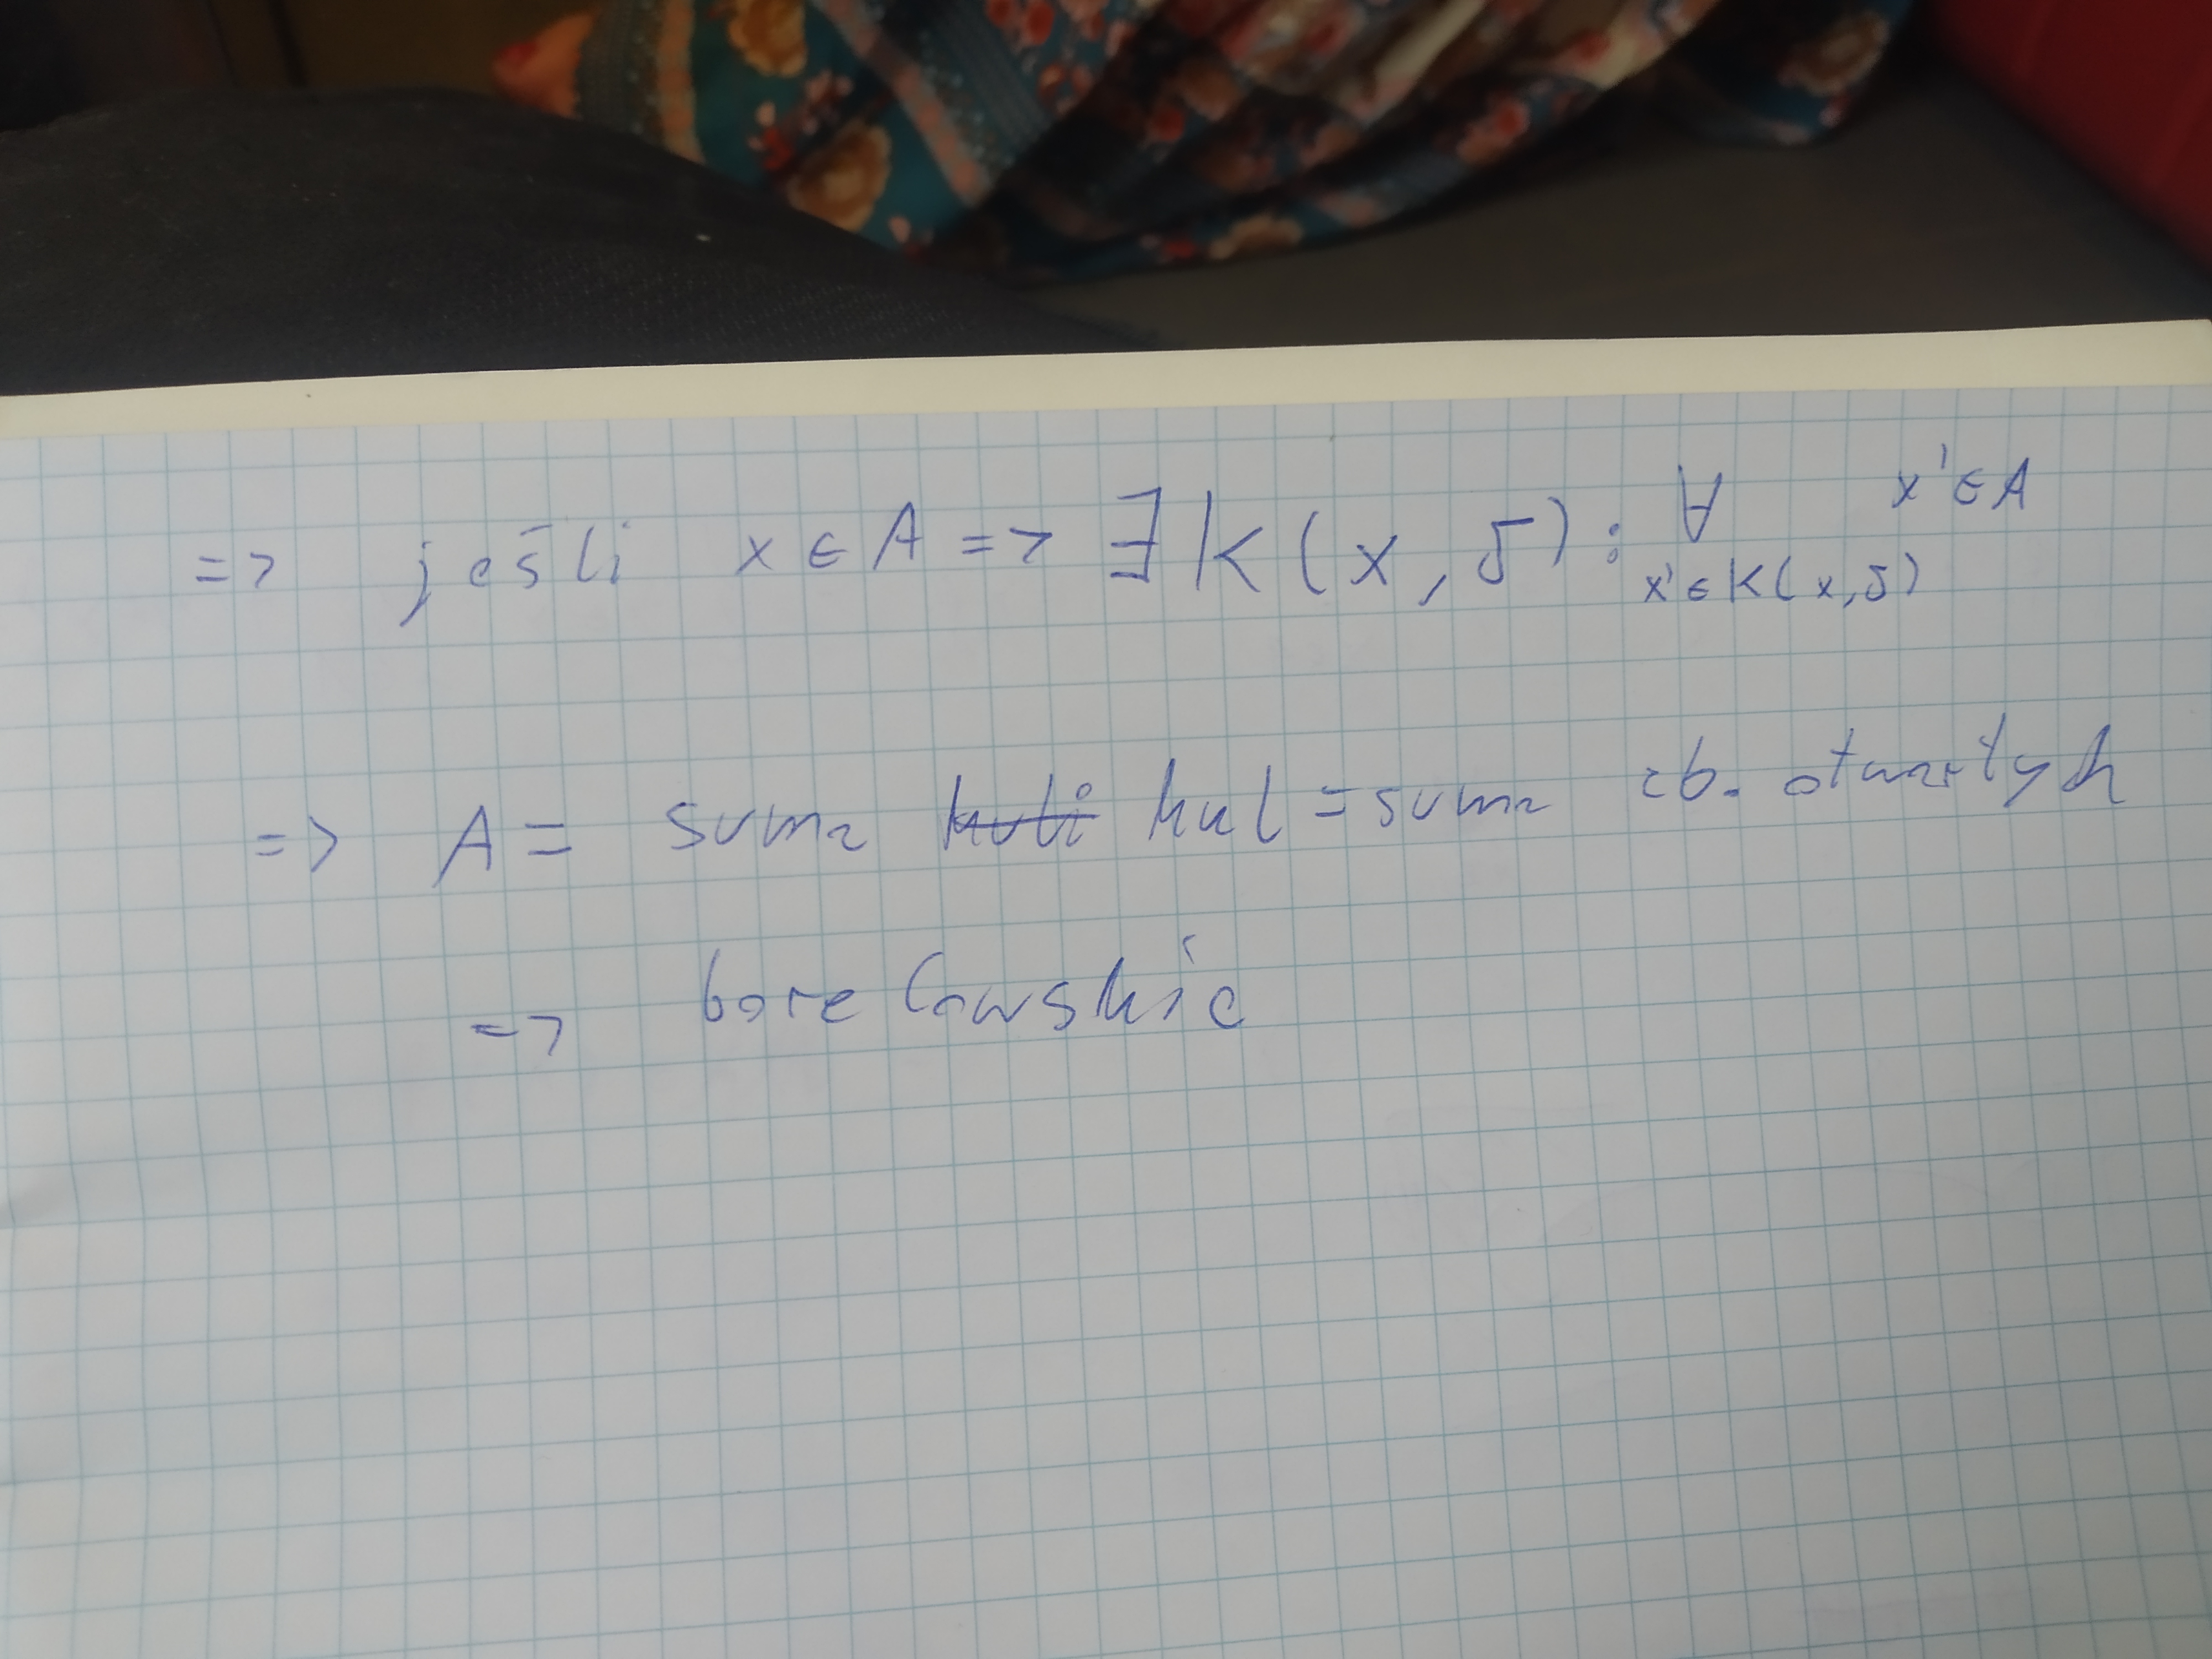 => jeśli x ∈ A => ∃ K(x, δ) : ∀ x' ∈ A
x' ∈ K(x, δ)
=> A = suma kuli kul = suma zb. otwartych
=> borelowskie